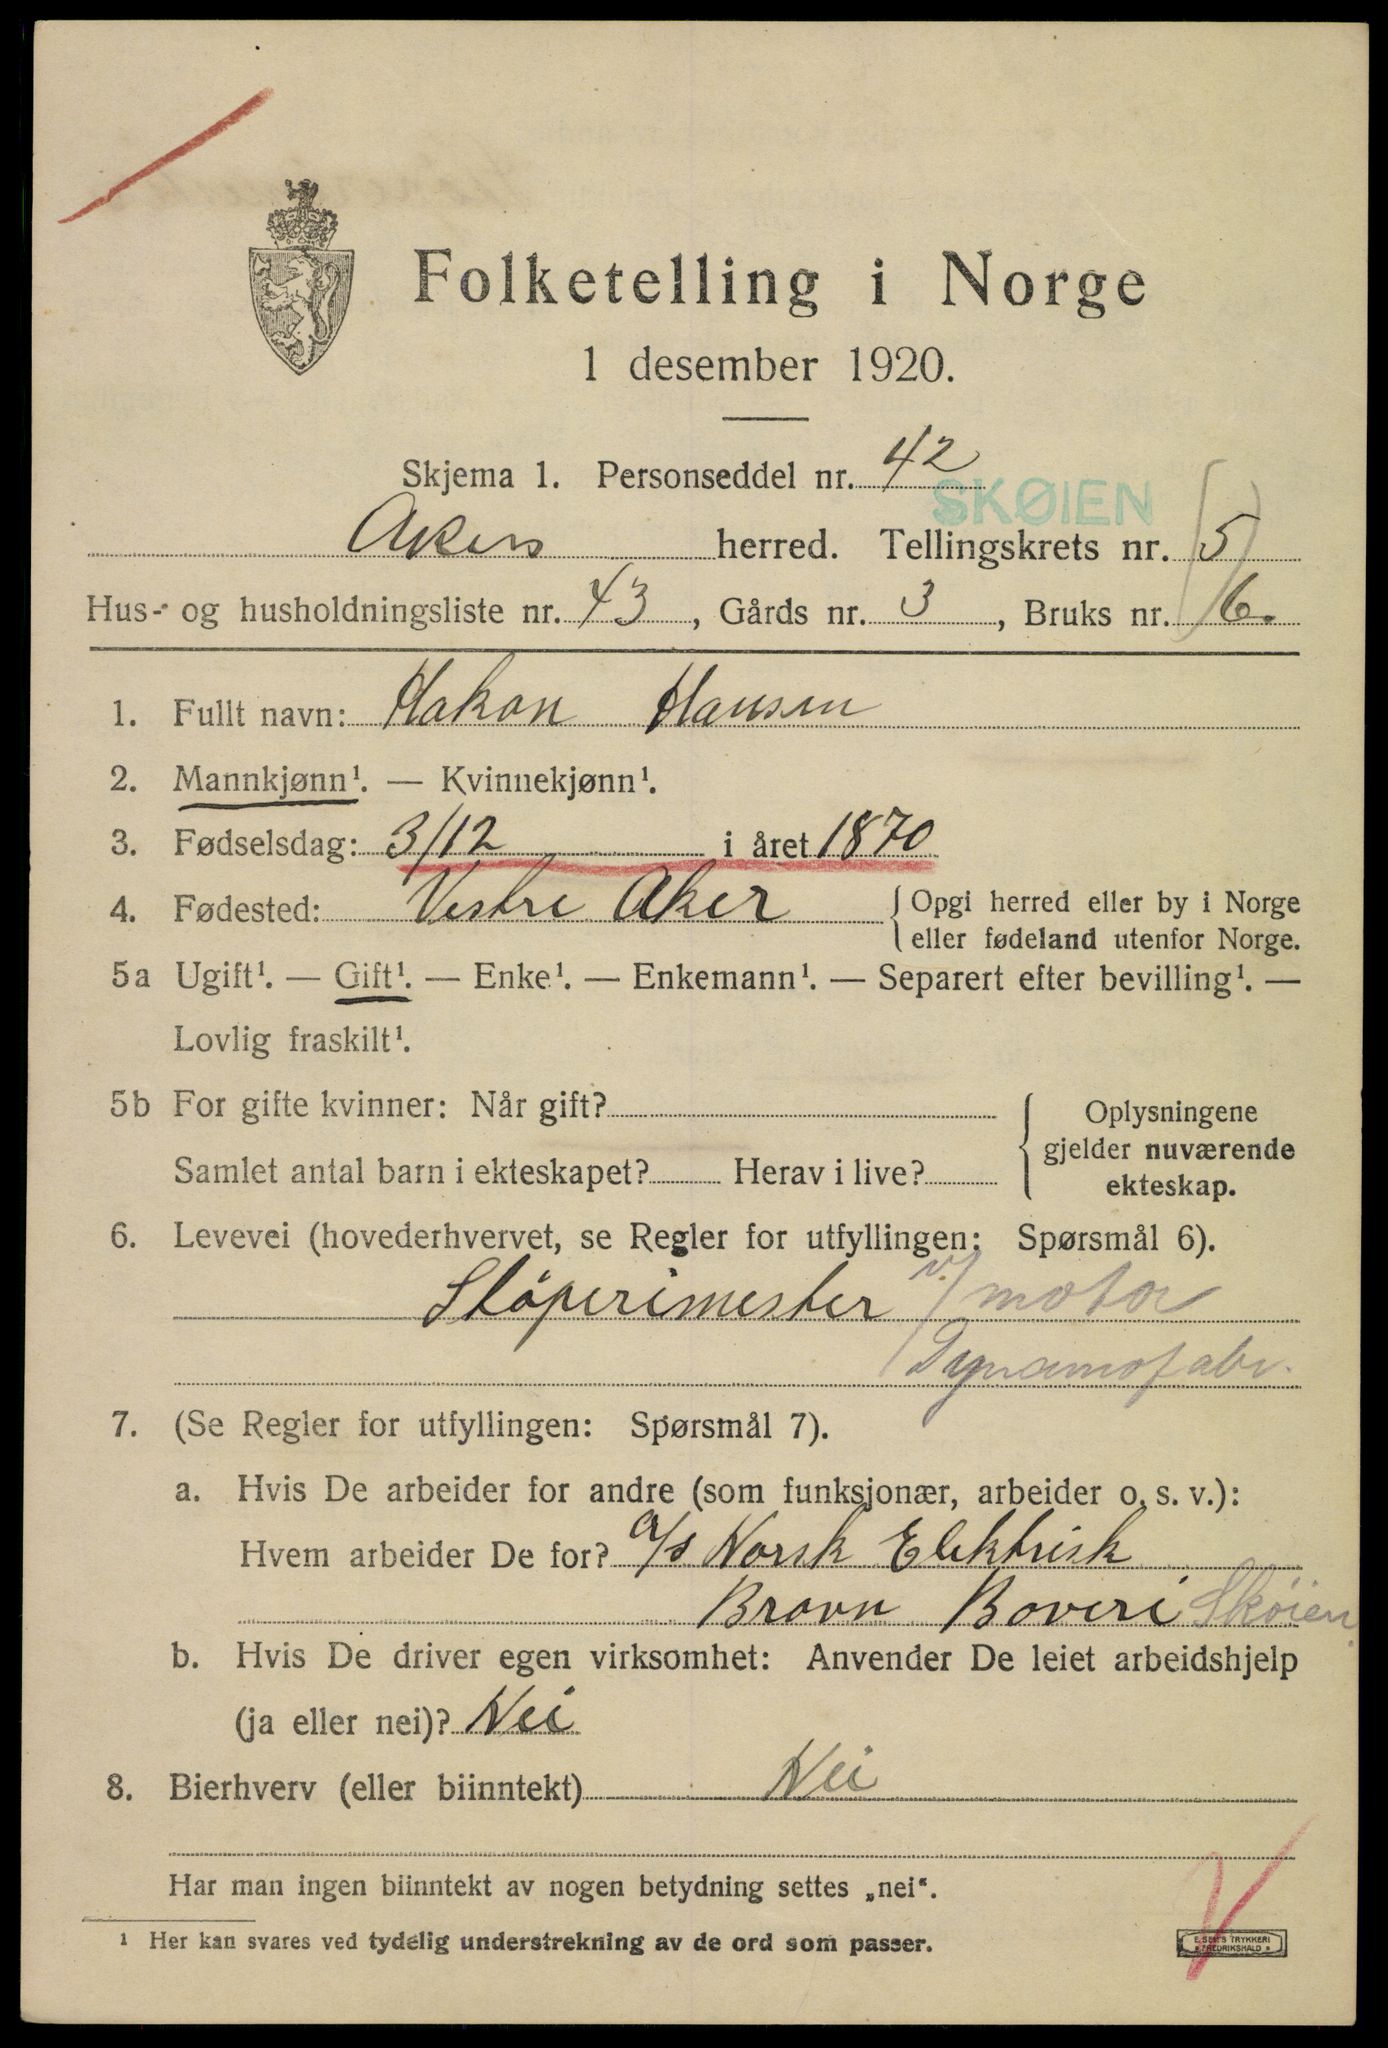 Folketelling i Norge
1 desember 1920.
Skjema 1. Personseddel nr. 42
SKØIEN
Akers herred. Tellingskrets nr. 5
Hus- og husholdningsliste nr. 43, Gårds nr. 3, Bruks nr. 6.
1. Fullt navn: Hakon Hansen
2. Mannkjønn¹. — Kvinnekjønn¹.
3. Fødselsdag: 3/12 i året 1870
4. Fødested: Vestre Aker { Opgi herred eller by i Norge
eller fødeland utenfor Norge.
5a Ugift¹. — Gift¹. — Enke¹. — Enkemann¹. — Separert efter bevilling¹. —
Lovlig fraskilt¹.
5b For gifte kvinner: Når gift? { Oplysningene
gjelder nuværende
Samlet antal barn i ekteskapet? Herav i live? ekteskap.
6. Levevei (hovederhvervet, se Regler for utfyllingen: Spørsmål 6).
Støperimester v/ motor
Dynamofabr.
7. (Se Regler for utfyllingen: Spørsmål 7).
a. Hvis De arbeider for andre (som funksjonær, arbeider o. s. v.):
Hvem arbeider De for? a/s Norsk Elektrisk
Bravn Boveri Skøien
b. Hvis De driver egen virksomhet: Anvender De leiet arbeidshjelp
(ja eller nei)? Nei
8. Bierhverv (eller biinntekt) Nei
Har man ingen biinntekt av nogen betydning settes „nei“.
¹ Her kan svares ved tydelig understrekning av de ord som passer.
E. SEM'S TRYKKERI
FREDRIKSHALD